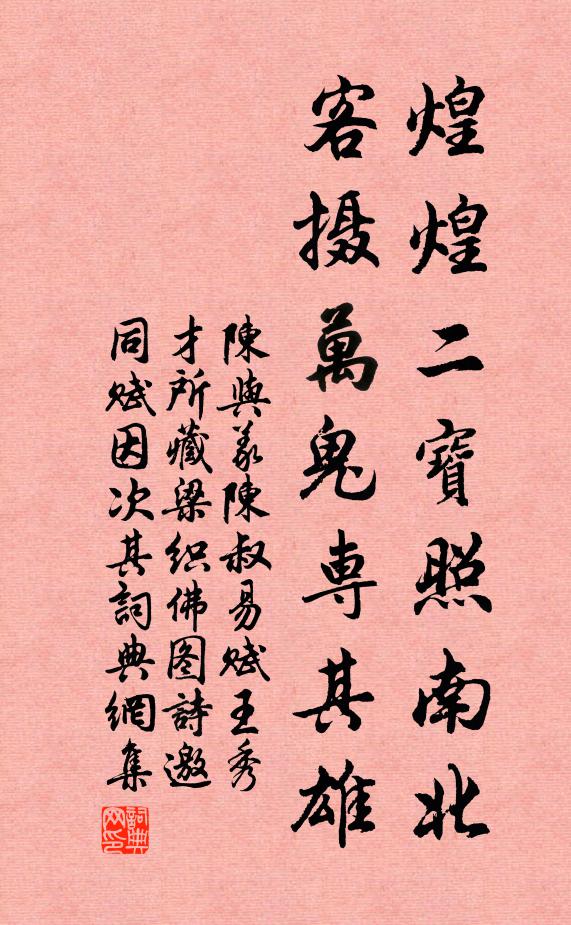 煌煌二寶照南北
客摄萬鬼専其雄
陳與義陳叔易赋王秀
才所藏梁织佛图詩邀
同赋因次其詞典網集
詞典网印